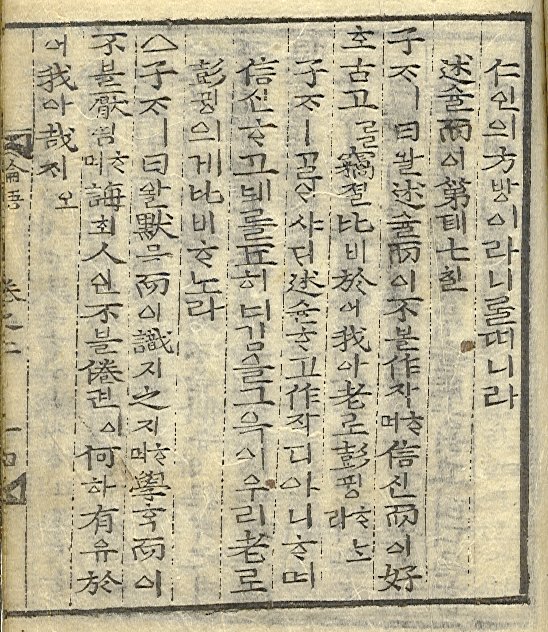 仁인의方방이라니ᄅᆞᆯᄯᅵ니라
述슐而이第뎨七칠
子ᄌᆞㅣ曰왈述슐而이不블作작ᄒᆞ며信신而이好
호古고ᄅᆞᆯ竊졀比비於어我아老로彭ᄑᆡᆼᄒᆞ노라
子ᄌᆞㅣᄀᆞᆯᄋᆞ샤ᄃᆡ述슐ᄒᆞ고作작디아니ᄒᆞ며
信신ᄒᆞ고녜ᄅᆞᆯ됴히너김을그윽이우리老로
彭ᄑᆡᆼ의게比비ᄒᆞ노라
○子ᄌᆞㅣ曰왈默믁而이識지之지ᄒᆞ며學ᄒᆞᆨ而이
不블厭염ᄒᆞ며誨회人인不블倦권이何하有유於
어我아哉ᄌᆡ오
論語 卷之二